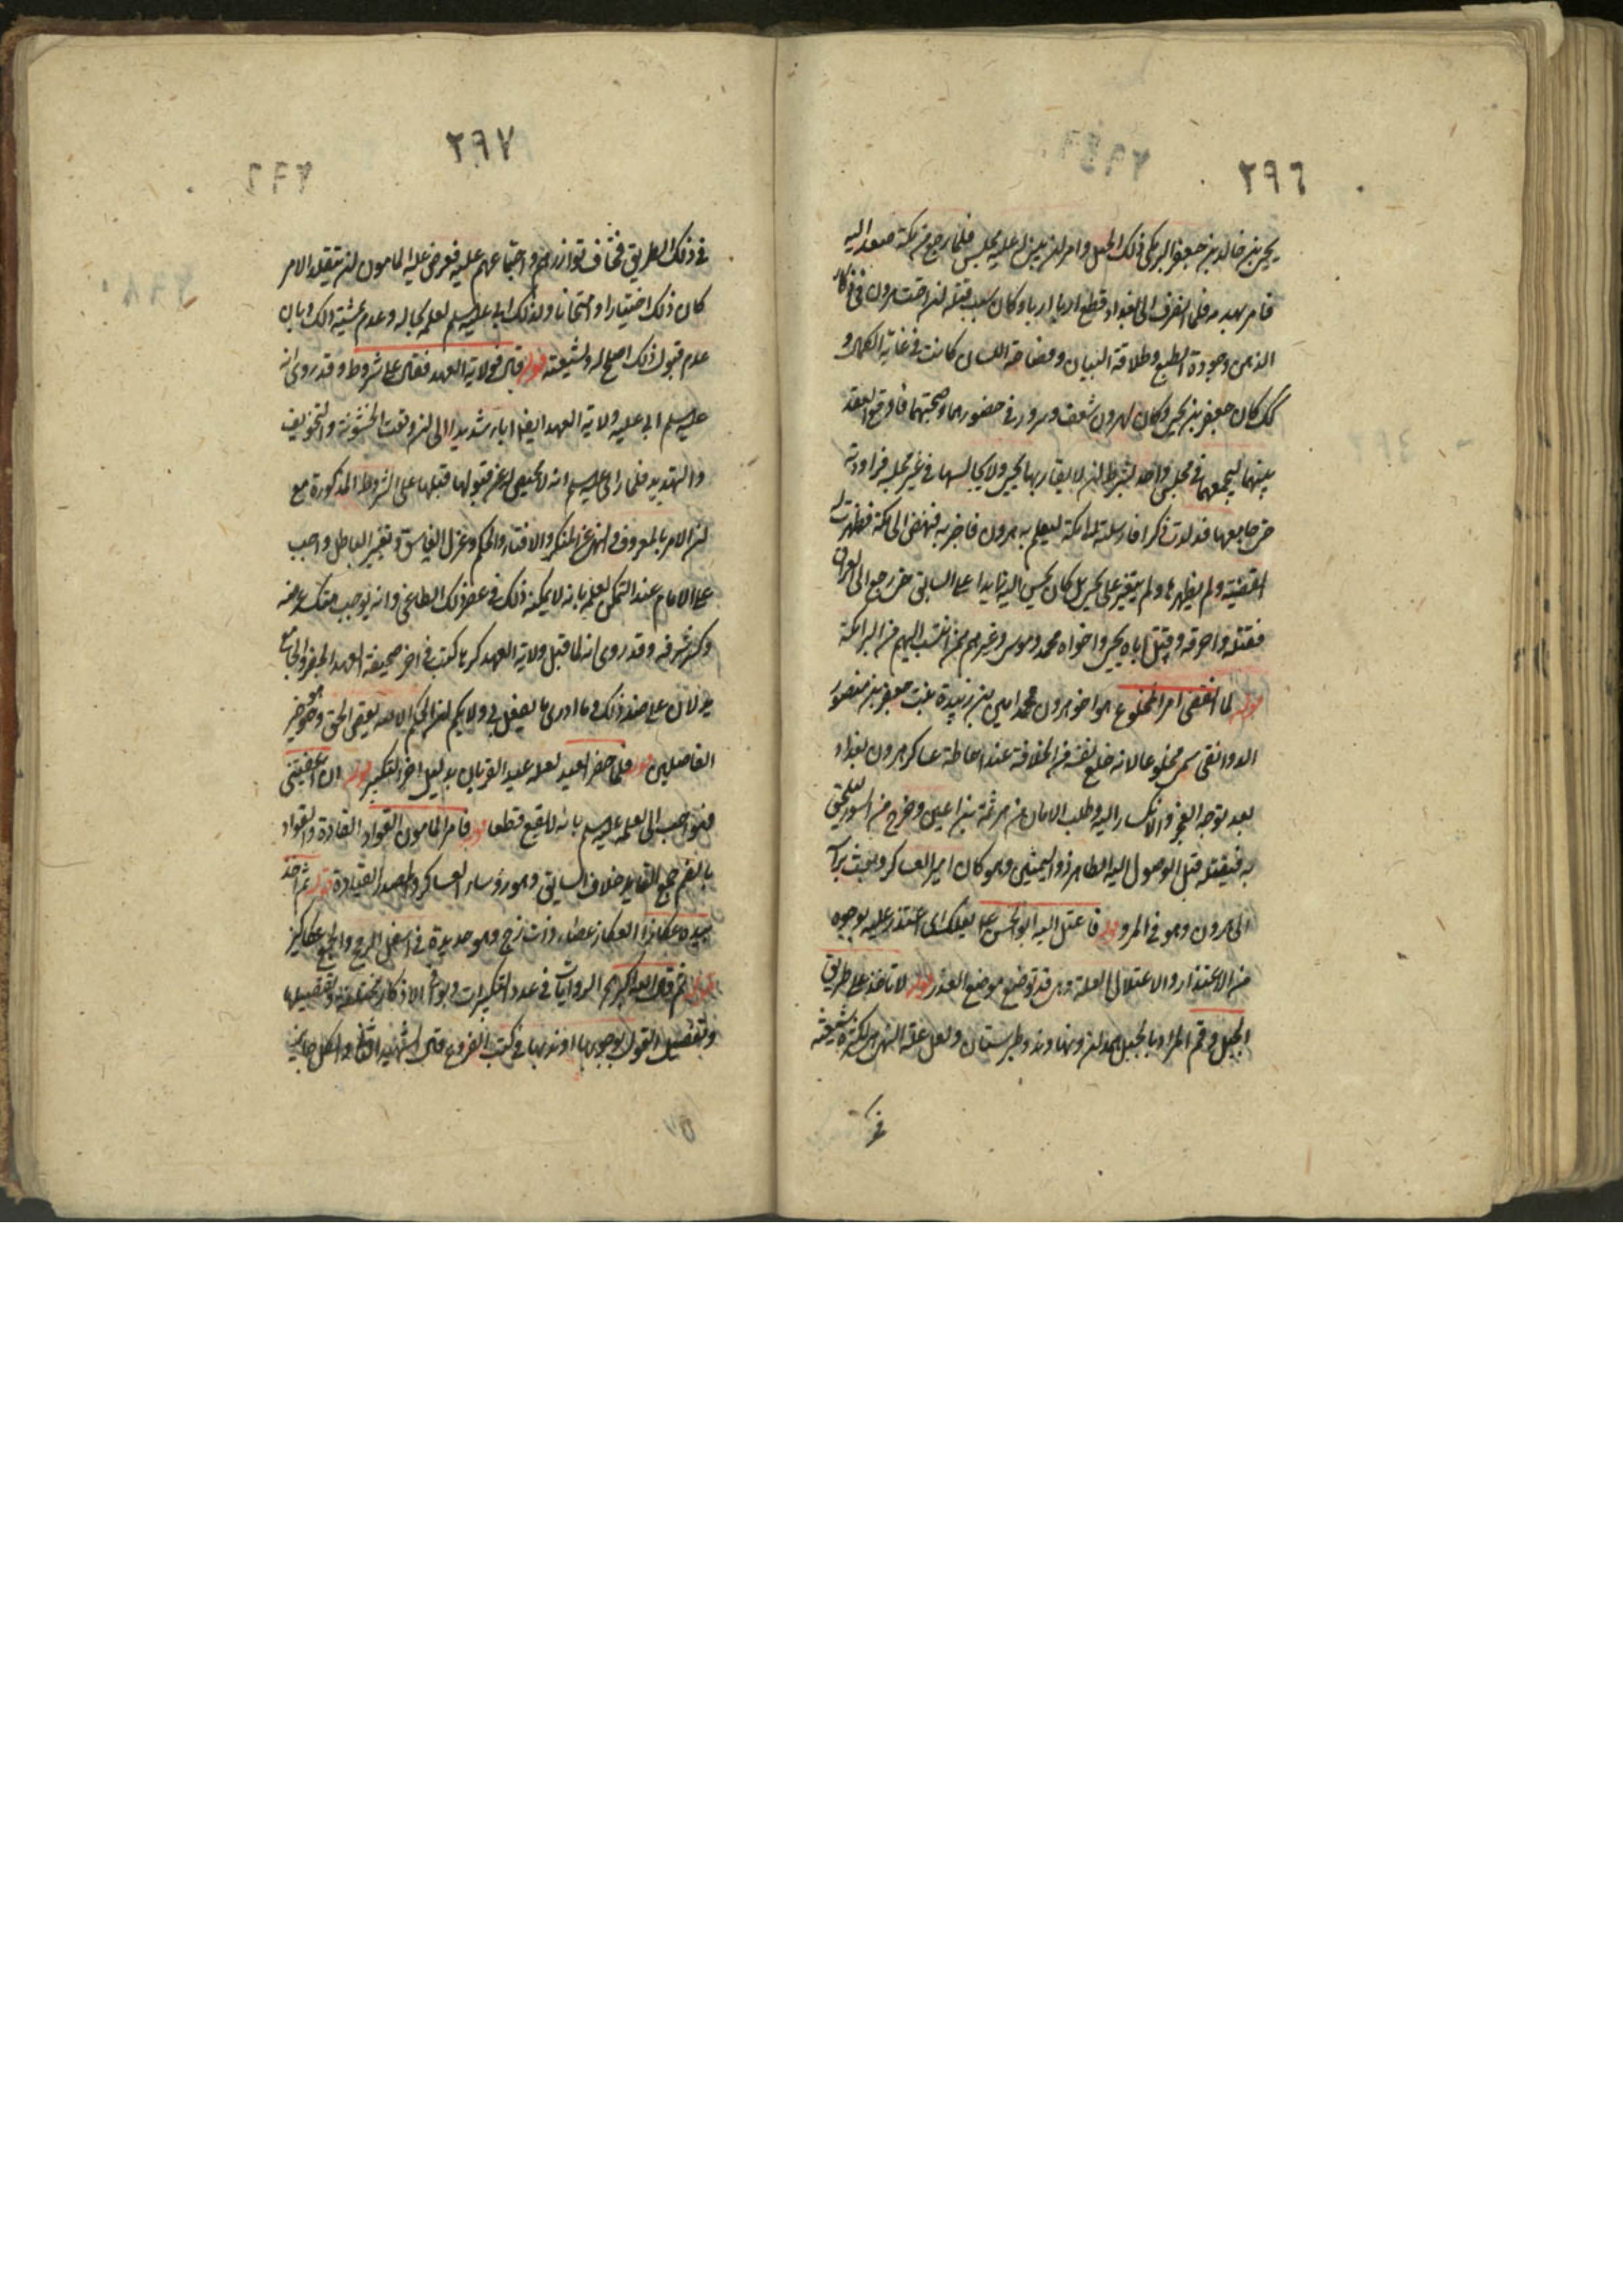 ٢٩٦
يحيى بن خالد بن جعفر البرمكي ذلك الجبل وامر ان يبنى له عليه مجلس فلما رجع من مكة صعد اليه
فامر بهدمه فلما انصرف الى بغداد قطع اربا اربا وكان سبب قتله ان اخت هرون في ذكاء
الذهن وجودة الطبع وطلاقة البيان وفصاحة اللسان كانت في غاية الكمال و
كك كان جعفر بن يحيى وكان لهرون شعف وسرور في حضورهما وصحبتهما فاوقع العقد
بينهما ليجمعهما في مجلس واحد بشرط ان لا يقاربها يحيى ولا يجالسها في غير مجلسه فراودته
حتى جامعها فولدت ذكرا فارسلته الى مكة ليعلم به هرون فاخبر به فنهض الى مكة فظهرت له
القضية ولم يظهرها ولم يتغير على يحيى بل كان يحسن اليه زايدا على السابق حتى رجع الى العراق
فقتله واحرقه وقتل اباه يحيى واخواه محمد وموسى وغيرهم ممن انتسب اليهم من البرامكة
قوله لما انقضى امر المخلوع هو اخو هرون محمد امين بن زبيدة بنت جعفر بن منصور
الدوانقى سمى مخلوعا لانه خلع نفسه من الخلافة عند احاطة عساكر هرون بغداد
بعد توجه العجز والانكسار اليه وطلب الامان من هرثمة بن اعين وخرج من السور ليلحق
به فقتله قبل الوصول اليه الطاهر ذو اليمينين وهو كان امير العساكر وبعث براسه
الى هرون وهو في المرو قوله فاعتل اليه ابو الحسن ع بعلل اى اعتذر عليه بوجوه
من الاعتذار والاعتلال العلة وهى قد توضع موضع العذر قوله لا تاخذ على طريق
الجبل وقم المراد بالجبل همدان ونهاوند وطبرستان ولعل علة النهى كثرة شيعته
في
٢٩٧
في ذلك الطريق فخاف توازرهم واجتماعهم عليه فعرض عليه المامون ان يتقلد الامر
كان ذلك اختبارا وامتحانا ولذلك ابى عليه السلم لعلمه بحاله وعدم مشية ذلك وبان
عدم قبول ذلك اصلح له ولشيعته قوله قال فولاية العهد فقال على شروط وقد روى انه
عليه السلم ابى عليه ولاية العهد ايضا اباء شديدا الى ان وقعت الخشونة والتخويف
والتهديد فلما راى عليه السلم انه لا محيص له عن قبولها قبلها على الشروط المذكورة مع
ان الامر بالمعروف والنهى عن المنكر والافتاء والحكم وعزل الفاسق وتغيير الباطل واجب
على الامام عند التمكن لعلمه بانه لا يمكنه ذلك في عصر ذلك الطاغى وانه يوجب هتك عرضه
وكسر شرفه وقد روى انه لما قبل ولاية العهد كرها كتب في اخر صحيفة العهد الجفر والجامعة
يدلان على ضد ذلك وما ادرى ما يفعل بى ولا بكم ان الحكم الا لله يقص الحق وهو خير
الفاصلين قوله فلما حضر العيد لعله عيد القربان بدليل اخر التكبير قوله ان اعفيتنى
فهو احب الى لعلمه عليه السلم بانه لا يقع قطعا قوله فامر المامون القواد القادة والقواد
بالضم جمع القايد خلاف السايق وهو رؤساء العساكر والمصدر القيادة قوله ثم اخذ
بيده عكازا العكاز عصاء ذات زج وهو حديدة في اسفل الرمح والجمع عكاكيز
قوله ثم قال الله اكبر الروايات في عدد التكبيرات وبواقى الاذكار مختلفة وتفصيلها
وتفصيل القول بوجوبها او ندبها في كتب الفروع قال الشهيد الثانى والكل جايز